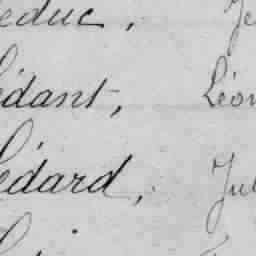 educ, Je
édant, Léon
édard, Jul